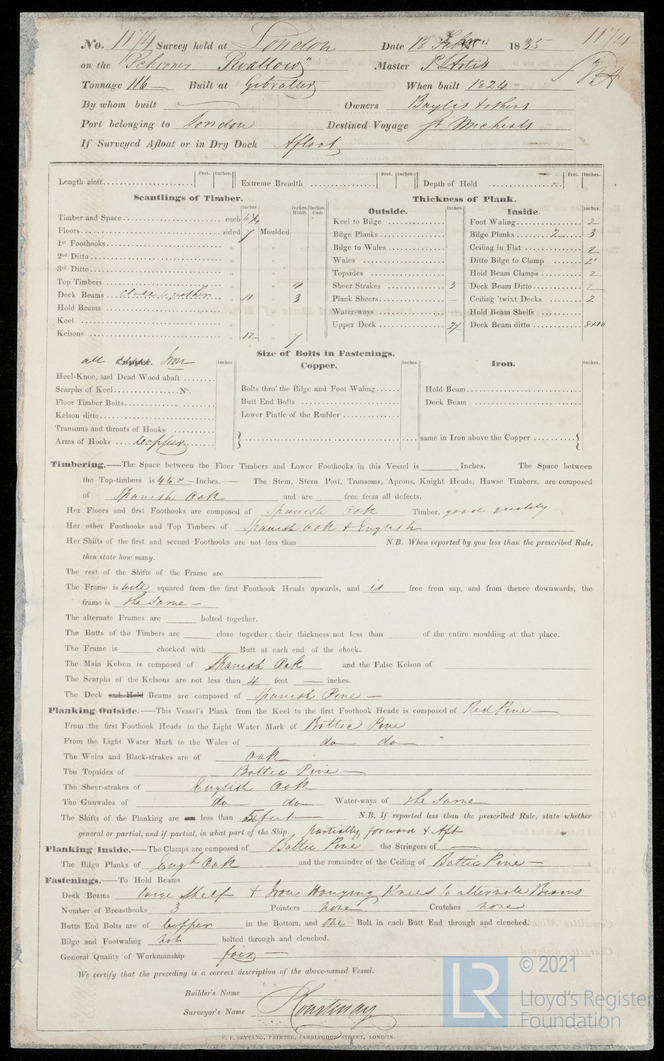 No. 1174 Survey held at London Date 18 Feby 1835 1174
on the Schooner "Swallow" Master P
Tonnage 116 Built at Gibralter When built 1824
By whom built — Owners Baylis & others
Port belonging to London Destined Voyage St Michaels
If Surveyed Afloat or in Dry Dock Afloat
Length aloft Feet. Inches. Extreme Breadth Feet. Inches. Depth of Hold Feet. Inches.
Scantlings of Timber.
Timber and Space each
Floors sided 7 Moulded
1st Foothooks
2nd Ditto
3rd Ditto
Top Timbers 4
Deck Beams 11 3
Hold Beams
Keel
Kelsons 12 7
Thickness of Plank.
Outside.
Keel to Bilge
Bilge Planks
Bilge to Wales
Wales
Topsides
Sheer Strakes 3
Plank Sheers
Water-ways
Upper Deck
Inside.
Foot Waling 2
Bilge Planks 2 3
Ceiling in Flat 2
Ditto Bilge to Clamp 2
Hold Beam Clamps 2
Deck Beam Ditto 2
Ceiling 'twixt Decks 2
Hold Beam Shelfs
Deck Beam ditto
Size of Bolts in Fastenings.
all Iron
Heel-Knee, and Dead Wood abaft
Scarphs of Keel No.
Floor Timber Bolts
Kelson ditto
Transoms and throats of Hooks
Arms of Hooks Copper
Copper.
Bolts thro' the Bilge and Foot Waling
Butt End Bolts
Lower Pintle of the Rudder
Iron.
Hold Beam
Deck Beam
same in Iron above the Copper
Timbering.—The Space between the Floor Timbers and Lower Foothooks in this Vessel is Inches. The Space between
the Top-timbers is Inches.— The Stem, Stern Post, Transoms, Aprons, Knight Heads, Hawse Timbers, are composed
of Spanish Oak and are free from all defects.
Her Floors and first Foothooks are composed of Spanish Oak Timber, good quality
Her other Foothooks and Top Timbers of Spanish Oak & English
Her Shifts of the first and second Foothooks are not less than N.B. When reported by you less than the prescribed Rule,
then state how many.
The rest of the Shifts of the Frame are
The Frame is well squared from the first Foothook Heads upwards, and is free from sap, and from thence downwards, the
frame is the same —
The alternate Frames are bolted together.
The Butts of the Timbers are close together; their thickness not less than of the entire moulding at that place.
The Frame is chocked with Butt at each end of the chock.
The Main Kelson is composed of Spanish Oak and the False Kelson of
The Scarphs of the Kelsons are not less than 4 feet — inches.
The Deck and Hold Beams are composed of Spanish Pine —
Planking Outside.—This Vessel's Plank from the Keel to the first Foothook Heads is composed of Red Pine —
From the first Foothook Heads to the Light Water Mark of Baltic Pine
From the Light Water Mark to the Wales of do do
The Wales and Black-strakes are of Oak
The Topsides of Baltic Pine —
The Sheer-strakes of English Oak
The Gunwales of do do Water-ways of the same
The Shifts of the Planking are less than 5 feet N.B. If reported less than the prescribed Rule, state whether
general or partial, and if partial, in what part of the Ship. partially forward & Aft
Planking Inside.—The Clamps are composed of Baltic Pine the Stringers of —
The Bilge Planks of Engh Oak and the remainder of the Ceiling of Baltic Pine —
Fastenings.—To Hold Beams
Deck Beams large Shelf & Iron Hanging Knees to alternate Beams
Number of Breasthooks 3 Pointers none Crutches none
Butts End Bolts are of Copper in the Bottom, and the Bolt in each Butt End through and clenched.
Bilge and Footwaling not bolted through and clenched.
General Quality of Workmanship fair —
We certify that the preceding is a correct description of the above-named Vessel.
Builder's Name
Surveyor's Name Courtenay
PRINTER, FARRINGDON STREET, LONDON.
LR © 2021
Lloyd's Register
Foundation